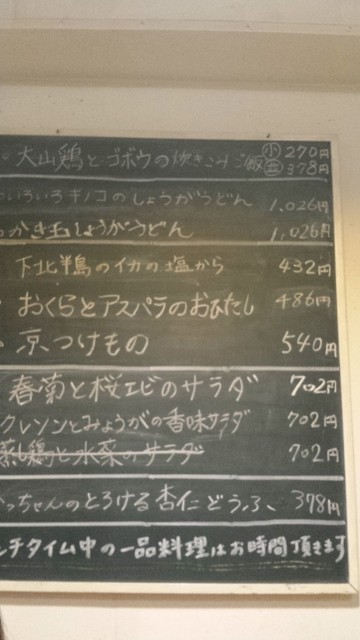 大山鶏とゴボウの炊きこみご飯 小 270円
並 378円
いろいろキノコのしょうがうどん 1,026円
かき玉しょうがうどん 1,026円
下北半島のイカの塩から 432円
おくらとアスパラのおひたし 486円
京つけもの 540円
春菊と桜エビのサラダ 702円
クレソンとみょうがの香味サラダ 702円
蒸し鶏と水菜のサラダ 702円
っちゃんのとろける杏仁どうふ、 378円
ンチタイム中の一品料理はお時間頂きます